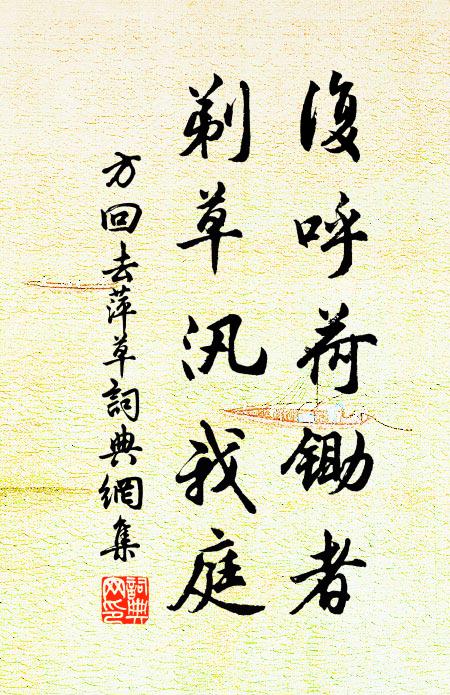 復呼荷鋤者
剃草汛我庭
方回去萍草詞典網集
詞典网印